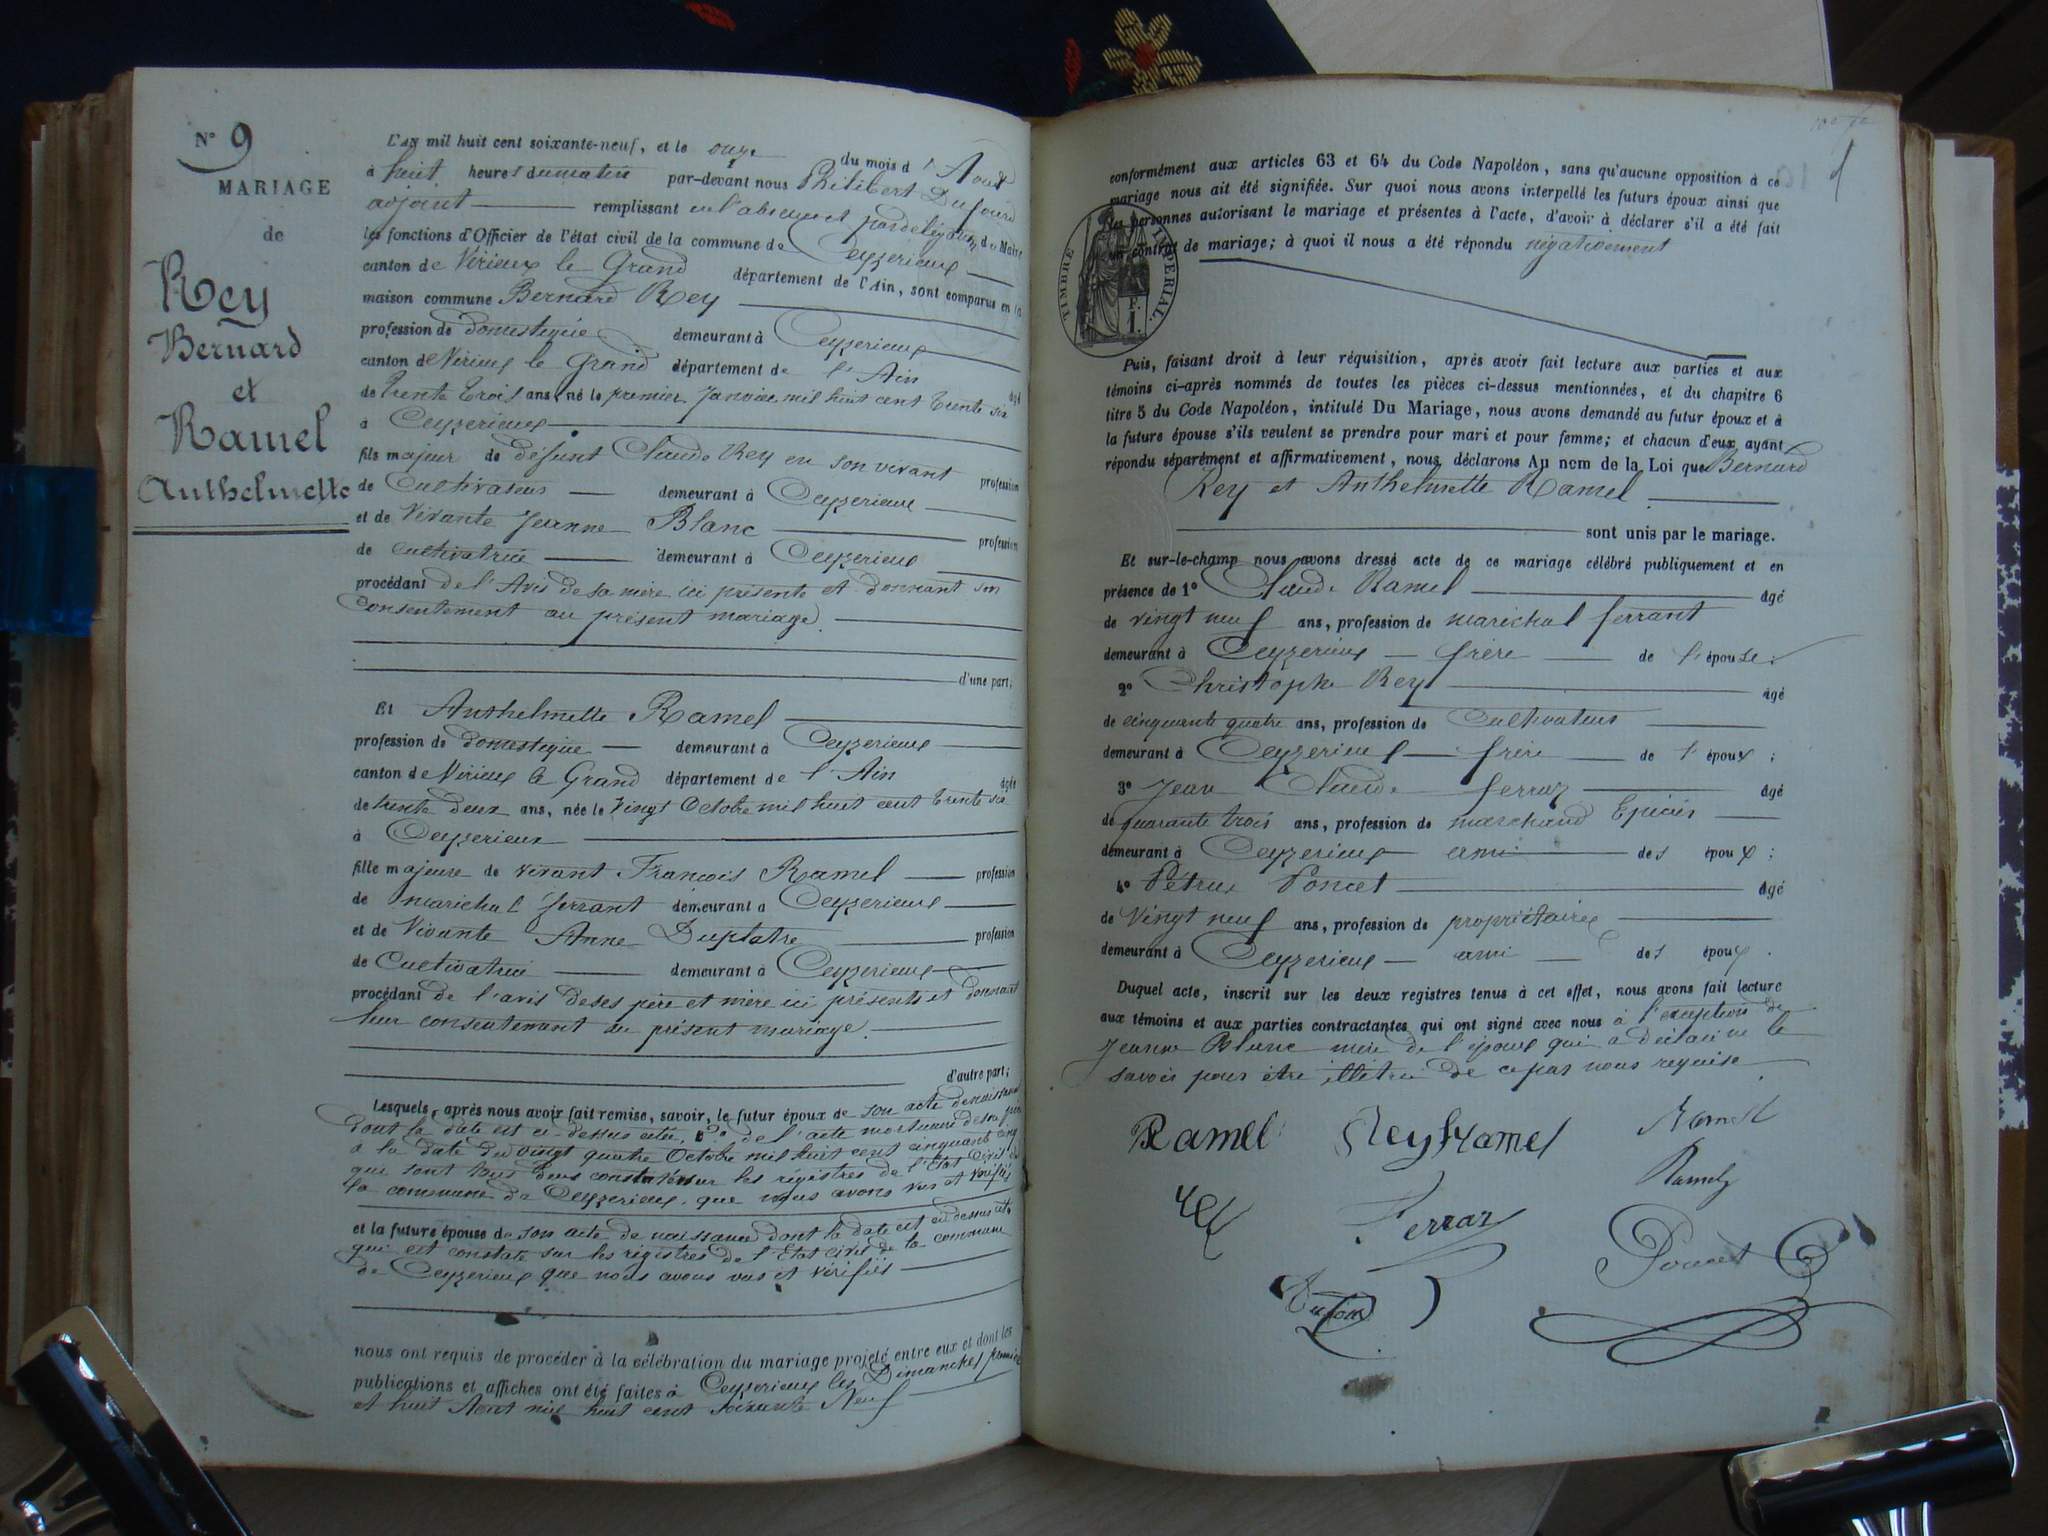 N° 9
MARIAGE
de
Rey
Bernard
et
Ramel
Anthelmette
L'an mil huit cent soixante-neuf, et le onze du mois d'Aout
à huit heures du matin par-devant nous Philibert Dufour
adjoint remplissant en l'absence et par délégation du Maire
les fonctions d'Officier de l'état civil de la commune de Ceyzerieux
canton de Virieux le Grand département de l'Ain, sont comparus en la
maison commune Bernard Rey
profession de domestique demeurant à Ceyzerieux
canton de Virieux le Grand département de l'Ain âgé
de trente trois ans, né le premier Janvier mil huit cent trente six
à Ceyzerieux
fils majeur de défunt Claude Rey en son vivant profession
de Cultivateur demeurant à Ceyzerieux
et de Vivante Jeanne Blanc profession
de cultivatrice demeurant à Ceyzerieux
procédant de l'Avis de sa mère ici présente et donnant son
consentement au présent mariage.
d'une part;
Et Anthelmette Ramel
profession de domestique demeurant à Ceyzerieux
canton de Virieux le Grand département de l'Ain âgée
de trente deux ans, née le Vingt Octobre mil huit cent trente six
à Ceyzerieux
fille majeure de vivant François Ramel profession
de marichal ferrant demeurant à Ceyzerieux
et de Vivante Anne Duplatre profession
de Cultivatrice demeurant à Ceyzerieux
procédant de l'avis de ses père et mère ici présents et donnant
leur consentement au présent mariage.
d'autre part;
Lesquels, après nous avoir fait remise, savoir, le futur époux de son acte de naissance
dont la date est ci-dessus citée, 2° de l'acte mortuaire de son père
à la date du vingt quatre Octobre mil huit cent cinquante cinq
qui sont tous deux constatés sur les régistres de l'Etat Civil de
la commune de Ceyzerieux que nous avons vus et vérifiés
et la future épouse de son acte de naissance dont la date est ci dessus citée
qui est constaté sur les régistres de l'Etat civil de la commune
de Ceyzerieux que nous avons vus et vérifiés
nous ont requis de procéder à la célébration du mariage projeté entre eux et dont les
publications et affiches ont été faites à Ceyzerieux les Dimanches premier
et huit Aout mil huit cent soixante Neuf
conformément aux articles 63 et 64 du Code Napoléon, sans qu'aucune opposition à ce
mariage nous ait été signifiée. Sur quoi nous avons interpellé les futurs époux ainsi que
les personnes autorisant le mariage et présentes à l'acte, d'avoir à déclarer s'il a été fait
un contrat de mariage; à quoi il nous a été répondu négativement
TIMBRE IMPERIAL.
1 F.
Puis, faisant droit à leur réquisition, après avoir fait lecture aux parties et aux
témoins ci-après nommés de toutes les pièces ci-dessus mentionnées, et du chapitre 6
titre 5 du Code Napoléon, intitulé Du Mariage, nous avons demandé au futur époux et à
la future épouse s'ils veulent se prendre pour mari et pour femme; et chacun d'eux ayant
répondu séparément et affirmativement, nous déclarons Au nom de la Loi que Bernard
Rey et Anthelmette Ramel
sont unis par le mariage.
Et sur-le-champ nous avons dressé acte de ce mariage célébré publiquement et en
présence de 1° Claude Ramel âgé
de vingt neuf ans, profession de marichal ferrant
demeurant à Ceyzerieux frère de l'épouse;
2° Christophe Rey âgé
de cinquante quatre ans, profession de Cultivateur
demeurant à Ceyzerieux frère de l'époux;
3° Jean Claude Ferraz âgé
de quarante trois ans, profession de marchand Epicier
demeurant à Ceyzerieux ami des époux;
4° Pétrus Poncet âgé
de Vingt neuf ans, profession de propriétaire
demeurant à Ceyzerieux ami des époux.
Duquel acte, inscrit sur les deux registres tenus à cet effet, nous avons fait lecture
aux témoins et aux parties contractantes qui ont signé avec nous à l'exception de
Jeanne Blanc mère de l'époux qui a déclaré ne le
savoir pour être illétrée de ce par nous requise
Ramel Rey Ramel Ramel
Ramel
Rey Ferraz Poncet
Dufour